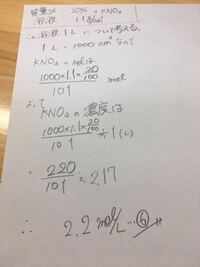 質量% … 20% の KNO₃
溶液 1.1g/cm³
この溶液1Lについて考える。
1L = 1000cm³ なので
KNO₃ の molは
1000×1.1×20/100
101 mol
よって
KNO₃ の濃度は
1000×1.1×20/100
101 ÷1(L)
= 220/101 ≒ 2.17
∴ 2.2 mol/L … ⑥